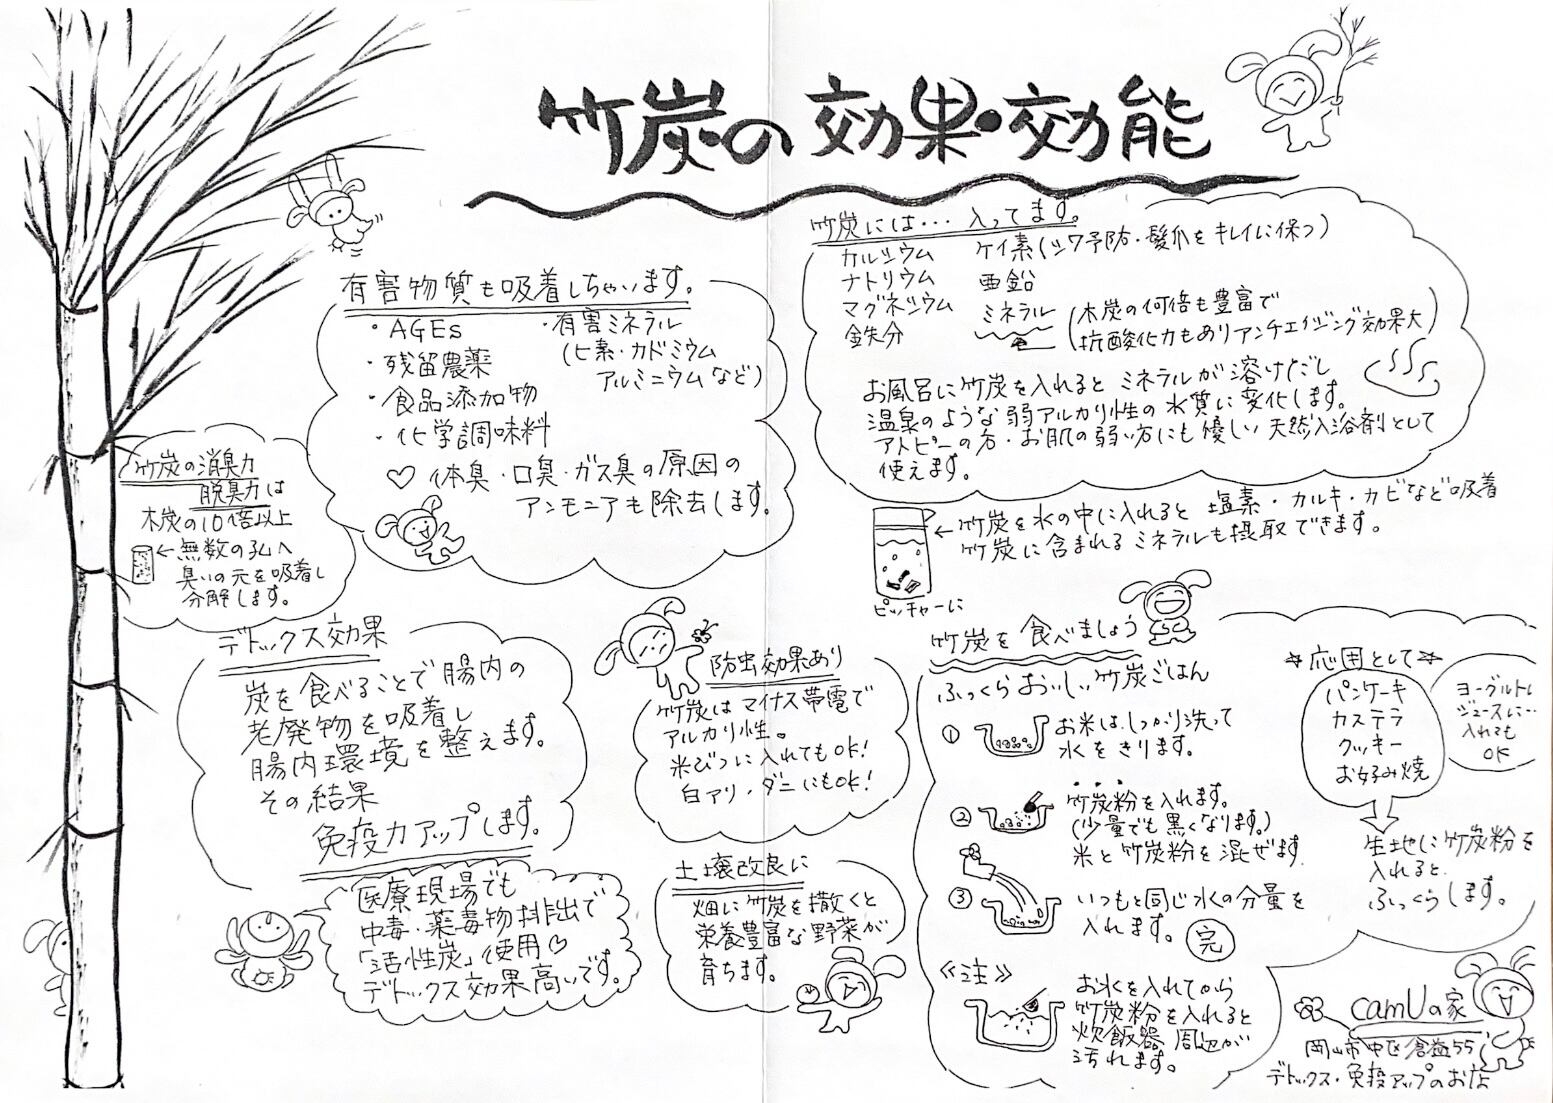 竹炭の効果・効能
竹炭には… 入ってます。
カルシウム
ナトリウム
マグネシウム
鉄分
ケイ素(シワ予防・髪爪をキレイに保つ)
亜鉛
ミネラル
(木炭の何倍も豊富で
抗酸化力もありアンチエイジング効果大)
お風呂に竹炭を入れるとミネラルが溶けだし
温泉のような弱アルカリ性の水質に変化します。
アトピーの方・お肌の弱い方にも優しい天然入浴剤として
使えます。
有害物質も吸着しちゃいます。
・AGEs
・残留農薬
・食品添加物
・化学調味料
・有害ミネラル
(ヒ素・カドミウム
アルミニウムなど)
♡体臭・口臭・ガス臭の原因の
アンモニアも除去します。
竹炭の消臭力
脱臭力は
木炭の10倍以上
←無数の孔へ
臭いの元を吸着し
分解します。
←竹炭を水の中に入れると 塩素・カルキ・カビなど吸着
竹炭に含まれるミネラルも摂取できます。
ピッチャーに
デトックス効果
炭を食べることで腸内の
老廃物を吸着し
腸内環境を整えます。
その結果
免疫力アップします。
医療現場でも
中毒・薬毒物排出で
「活性炭」使用♡
デトックス効果高いです。
防虫効果あり
竹炭はマイナス帯電で
アルカリ性。
米びつに入れてもOK!
白アリ・ダニにもOK!
土壌改良に
畑に竹炭を撒くと
栄養豊富な野菜が
育ちます。
竹炭を食べましょう
ふっくらおいしい竹炭ごはん
① お米はしっかり洗って
水をきります。
② 竹炭粉を入れます。
(少量でも黒くなります。)
米と竹炭粉を混ぜます。
③ いつもと同じ水の分量を
入れます。 完
≪注≫
お水を入れてから
竹炭粉を入れると
炊飯器周辺が
汚れます。
☆応用として☆
パンケーキ
カステラ
クッキー
お好み焼
ヨーグルトし
ジュースに…
入れても
OK
生地に竹炭粉を
入れると
ふっくらします。
camUの家
岡山市中区倉益55
デトックス・免疫アップのお店